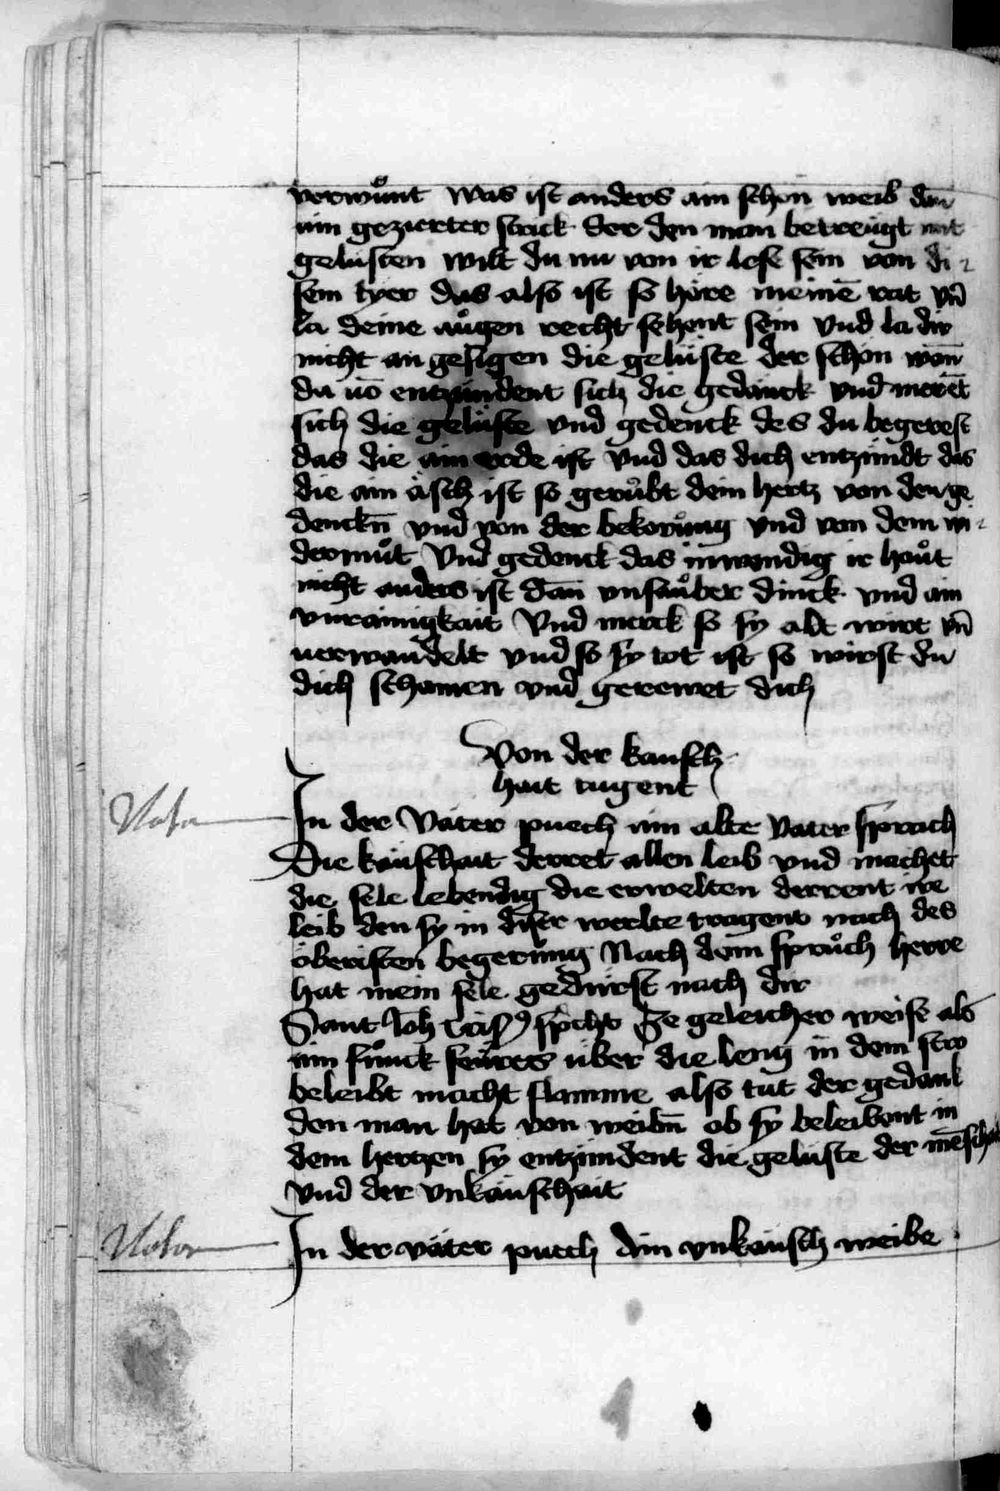 verwůnt Was ist anders ain schon weib dan̄
ain gezierter strick der den man betreugt mit
gelusten wilt du nu von ir lose sein von di-
sem tyer das also ist so höre meinē rat vn̄
la deine aůgen recht sehent sein vnd la dir
nicht an gesigen die gelüste der schön wan̄
da uō entzündent sich die gedänck vnd merēt
sich die gelüste vnd gedenck des du begerest
das die ain erde ist vnd das dich entzündt das
die ain äsch ist so gerůbt dein hertz von den ge
denckn̄ vnd von der bekorůng vnd von dem wi-
dermůt Vnd gedenck das inwendig ir haůt
nicht anders ist dan̄ vnsaůber dinck vnd ain
vnrainigkait Vnd merck so sy alt wirt vn̄
uerwandelt vnd so sy tot ist so wirst du
dich schamen vnd gerewet dich
Von der kausch
hait tugent
Nota In der Väter puech ain alte Vater sprach
Die käuschait derret allen leib vnd machet
die sele lebendig die erwelten derrent ire
leib den sy in diser werlte tragent nach des
öberisten begerung Nach dem sprůch herre
hat mein sele gedürst nach dir
Sant Joh spcht Ze geleicher weise als
ain fůnck feures über die leng in dem stro
beleibt macht flamme also tut der gedank
den man hat von weibn̄ ob sy beleibent in
dem hertzen sy entzündent die gelüste der mēschait
vnd der vnkäuschait
Nota In der väter puech Ain vnkäusch weibe